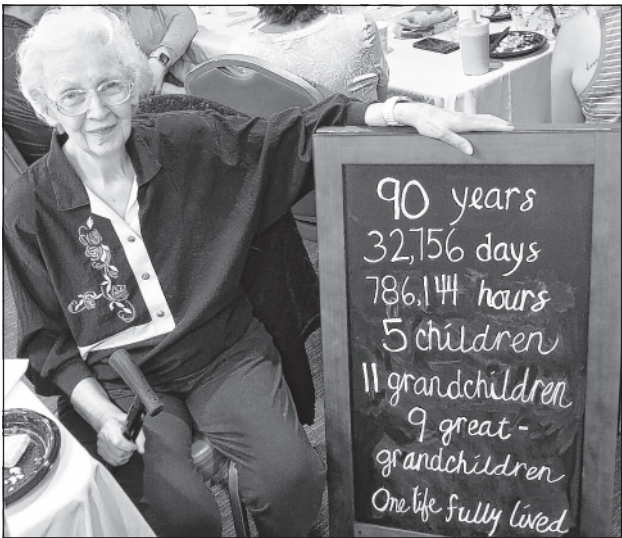 90 years
32,756 days
786,144 hours
5 children
11 grandchildren
9 great-
grandchildren
One life fully lived